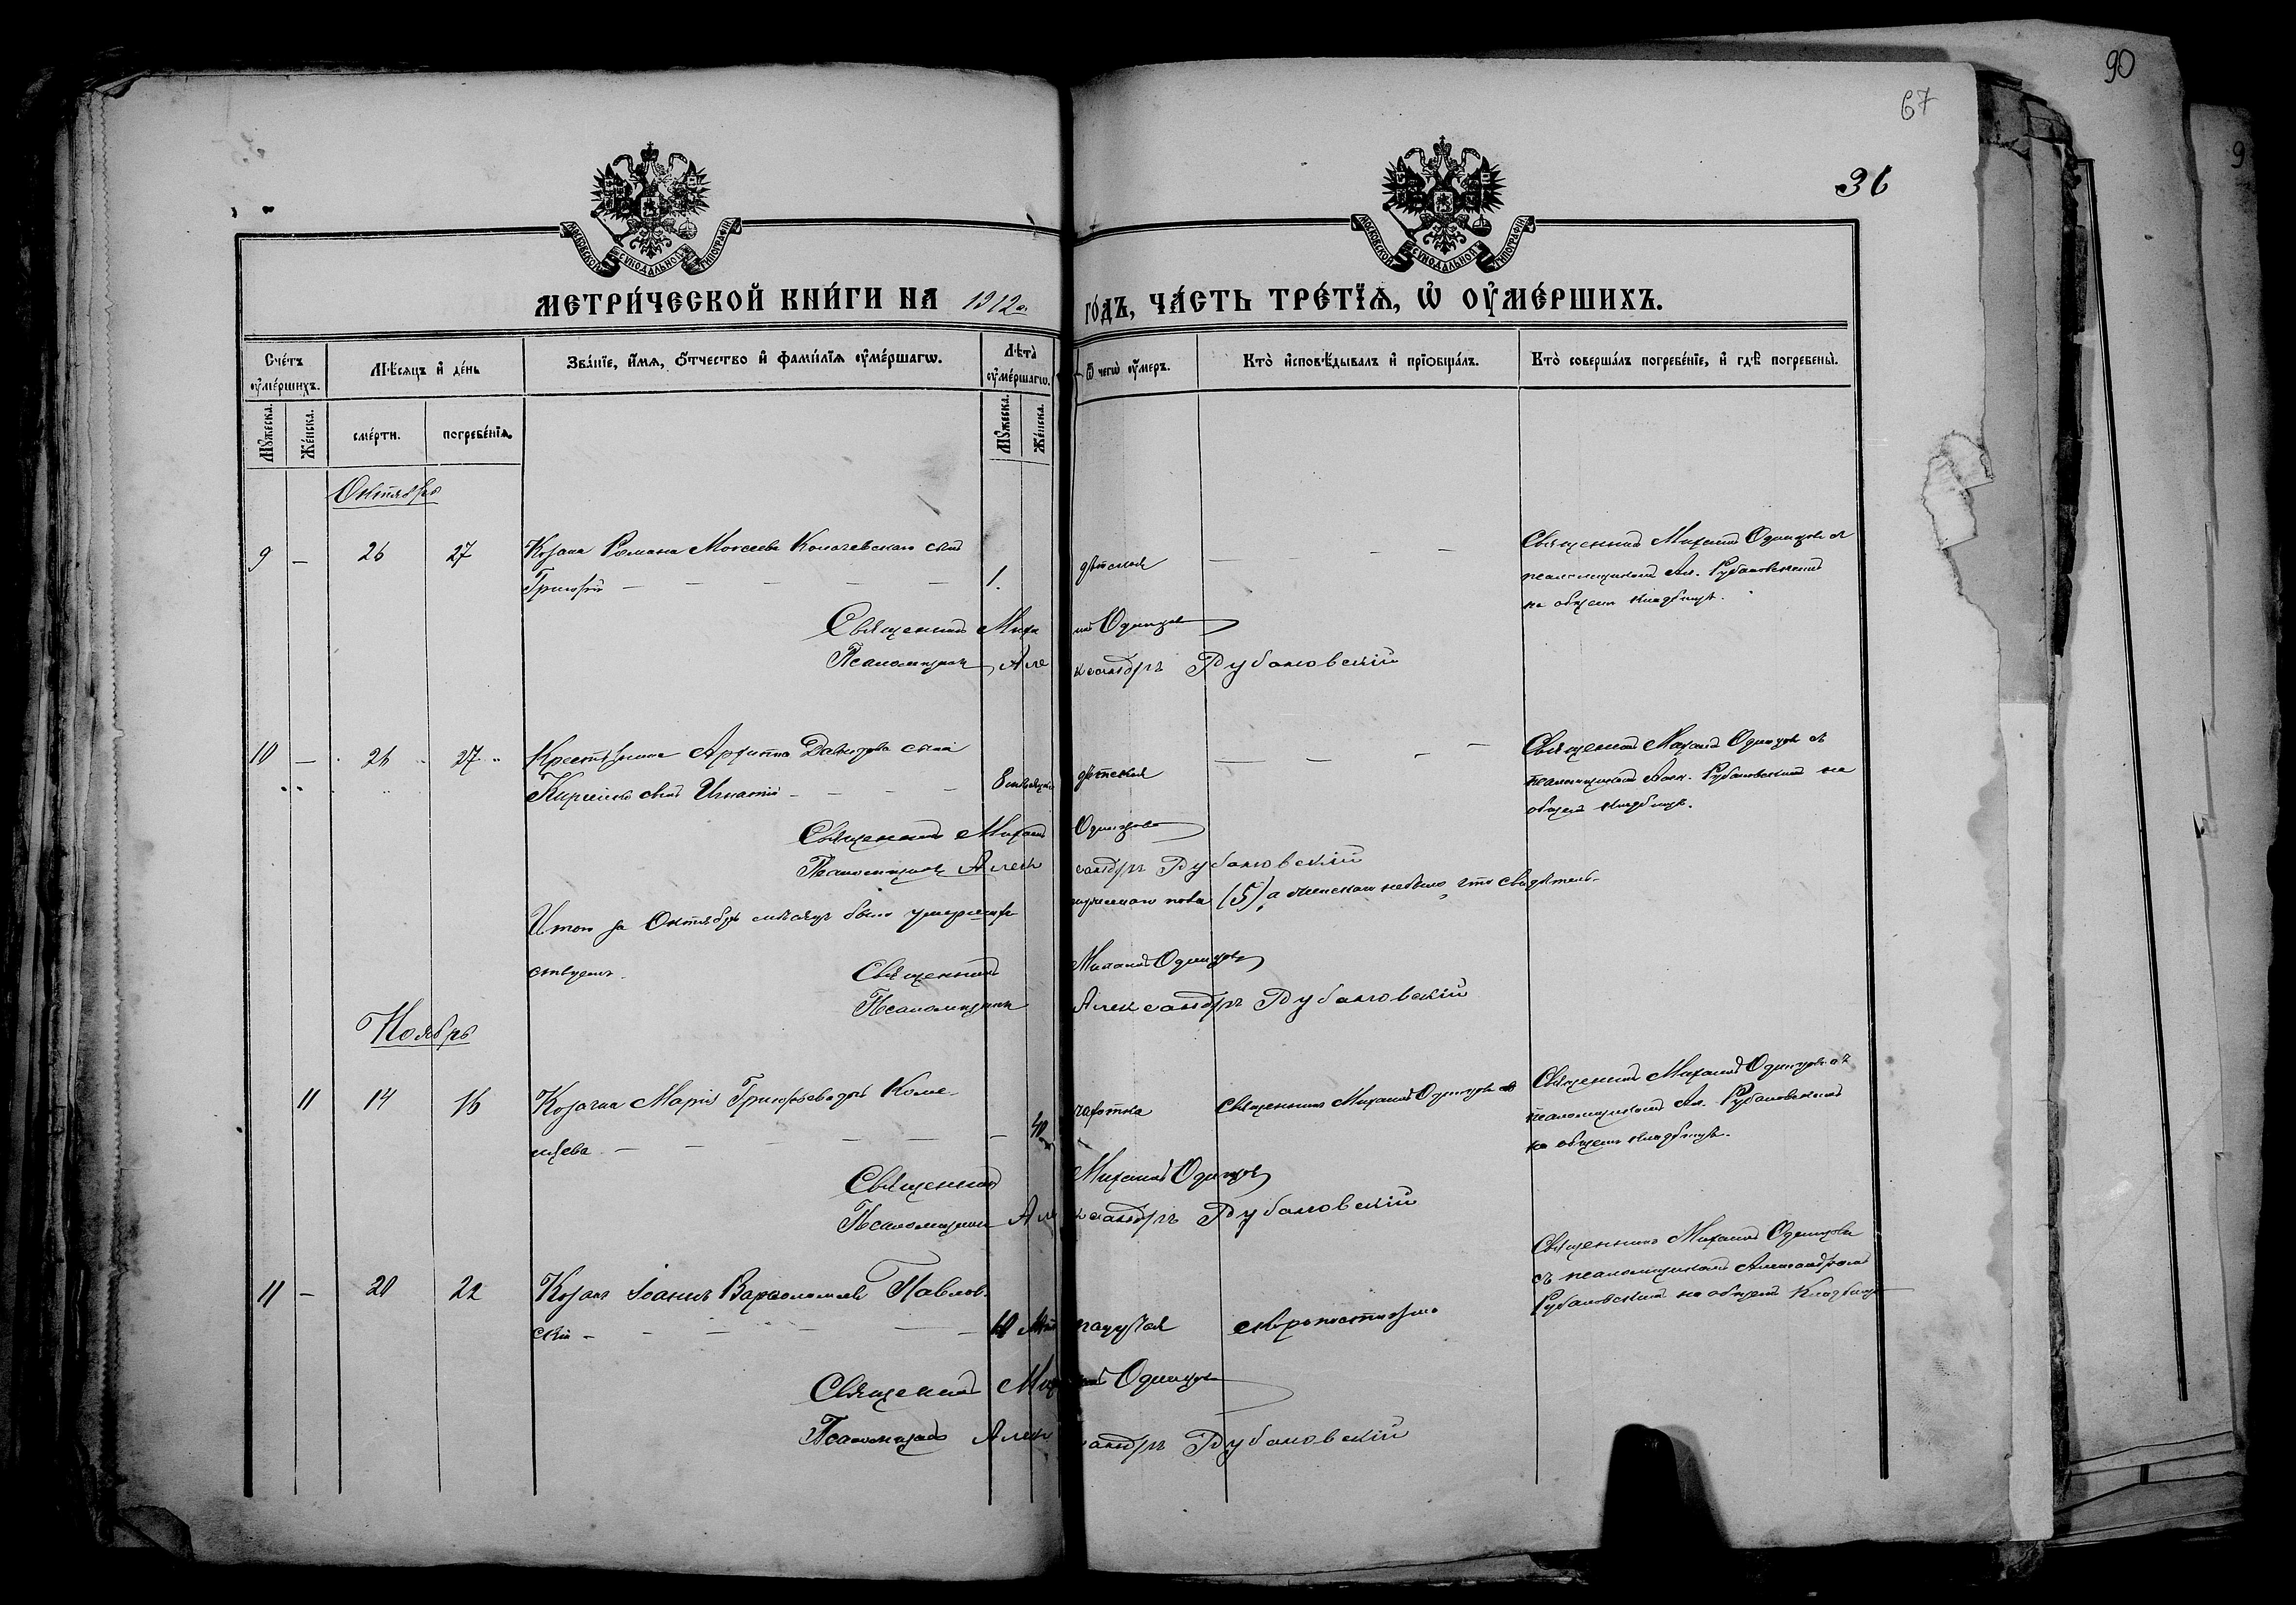 90
67
36
9
МОСКОВСКОЙ СУНОДАЛЬНОЙ ТИПОГРАФІИ
МОСКОВСКОЙ СУНОДАЛЬНОЙ ТИПОГРАФІИ
МЕТРИ́ЧЕСКОЙ КНИ́ГИ НА 1912 го́дъ, ЧА́СТЬ ТРЕ́ТЇѦ, Ѽ ОУ҆МЕ́РШИХЪ.
Сче́тъ оу҆ме́ршихъ.
Мѣ́сяцъ и҆ де́нь
Зва́нїе, и҆́мѧ, ѻ҆́тчество и҆ фами́лїѧ оу҆ме́ршагѡ.
Лѣ̑та̀ оу҆ме́ршагѡ.
Ѿ чегѡ̀ оу҆́меръ.
Кто̀ и҆сповѣ́дывалъ и҆ прїѡбща́лъ.
Кто̀ соверша́лъ погребе́нїе, и҆ гдѣ̀ погребены̀.
Мꙋ́жеска.
Же́нска.
сме́рти.
погребе́нїѧ.
Мꙋ́жеска.
Же́нска.
Октябрь
9 — 26 27 Козака Романа Моисеева сынъ
Григорій — — — — — 1. дѣтская — — — —
Священникъ Михаилъ Одинцовъ съ
псаломщикомъ Ал. Рубановскимъ
на общемъ кладбищѣ.
Священникъ Михаилъ Одинцовъ
Псаломщикъ Александръ Рубановскій
10 — 26 27 Крестьянина Давидова сына
сынъ Игнатій — — — — 8 дѣтская — — — —
Священникъ Михаилъ Одинцовъ съ
псаломщикомъ Алек. Рубановскимъ на
общемъ кладбищѣ.
Священникъ Михаилъ Одинцовъ
Псаломщикъ Александръ Рубановскій
Итого за Октябрь мѣсяцъ было умершихъ мужескаго пола (5) а женскаго небыло, что свидѣтель-
ствуемъ.
Священникъ Михаилъ Одинцовъ
Псаломщикъ Александръ Рубановскій
Ноябрь
11 14 16 Козачка Марія Григорьева
— — — — — 40 чахотка Священникъ Михаилъ Одинцовъ
Священникъ Михаилъ Одинцовъ съ
псаломщикомъ Ал. Рубановскимъ
на общемъ кладбищѣ.
Священникъ Михаилъ Одинцовъ
Псаломщикъ Александръ Рубановскій
11 — 20 22 Козакъ Іоаннъ Варѳоломеевъ Павлов-
скій — — — — — скоропостижно
Священникъ Михаилъ Одинцовъ
съ псаломщикомъ Александромъ
Рубановскимъ на общемъ кладбищѣ
Священникъ Михаилъ Одинцовъ
Псаломщикъ Александръ Рубановскій